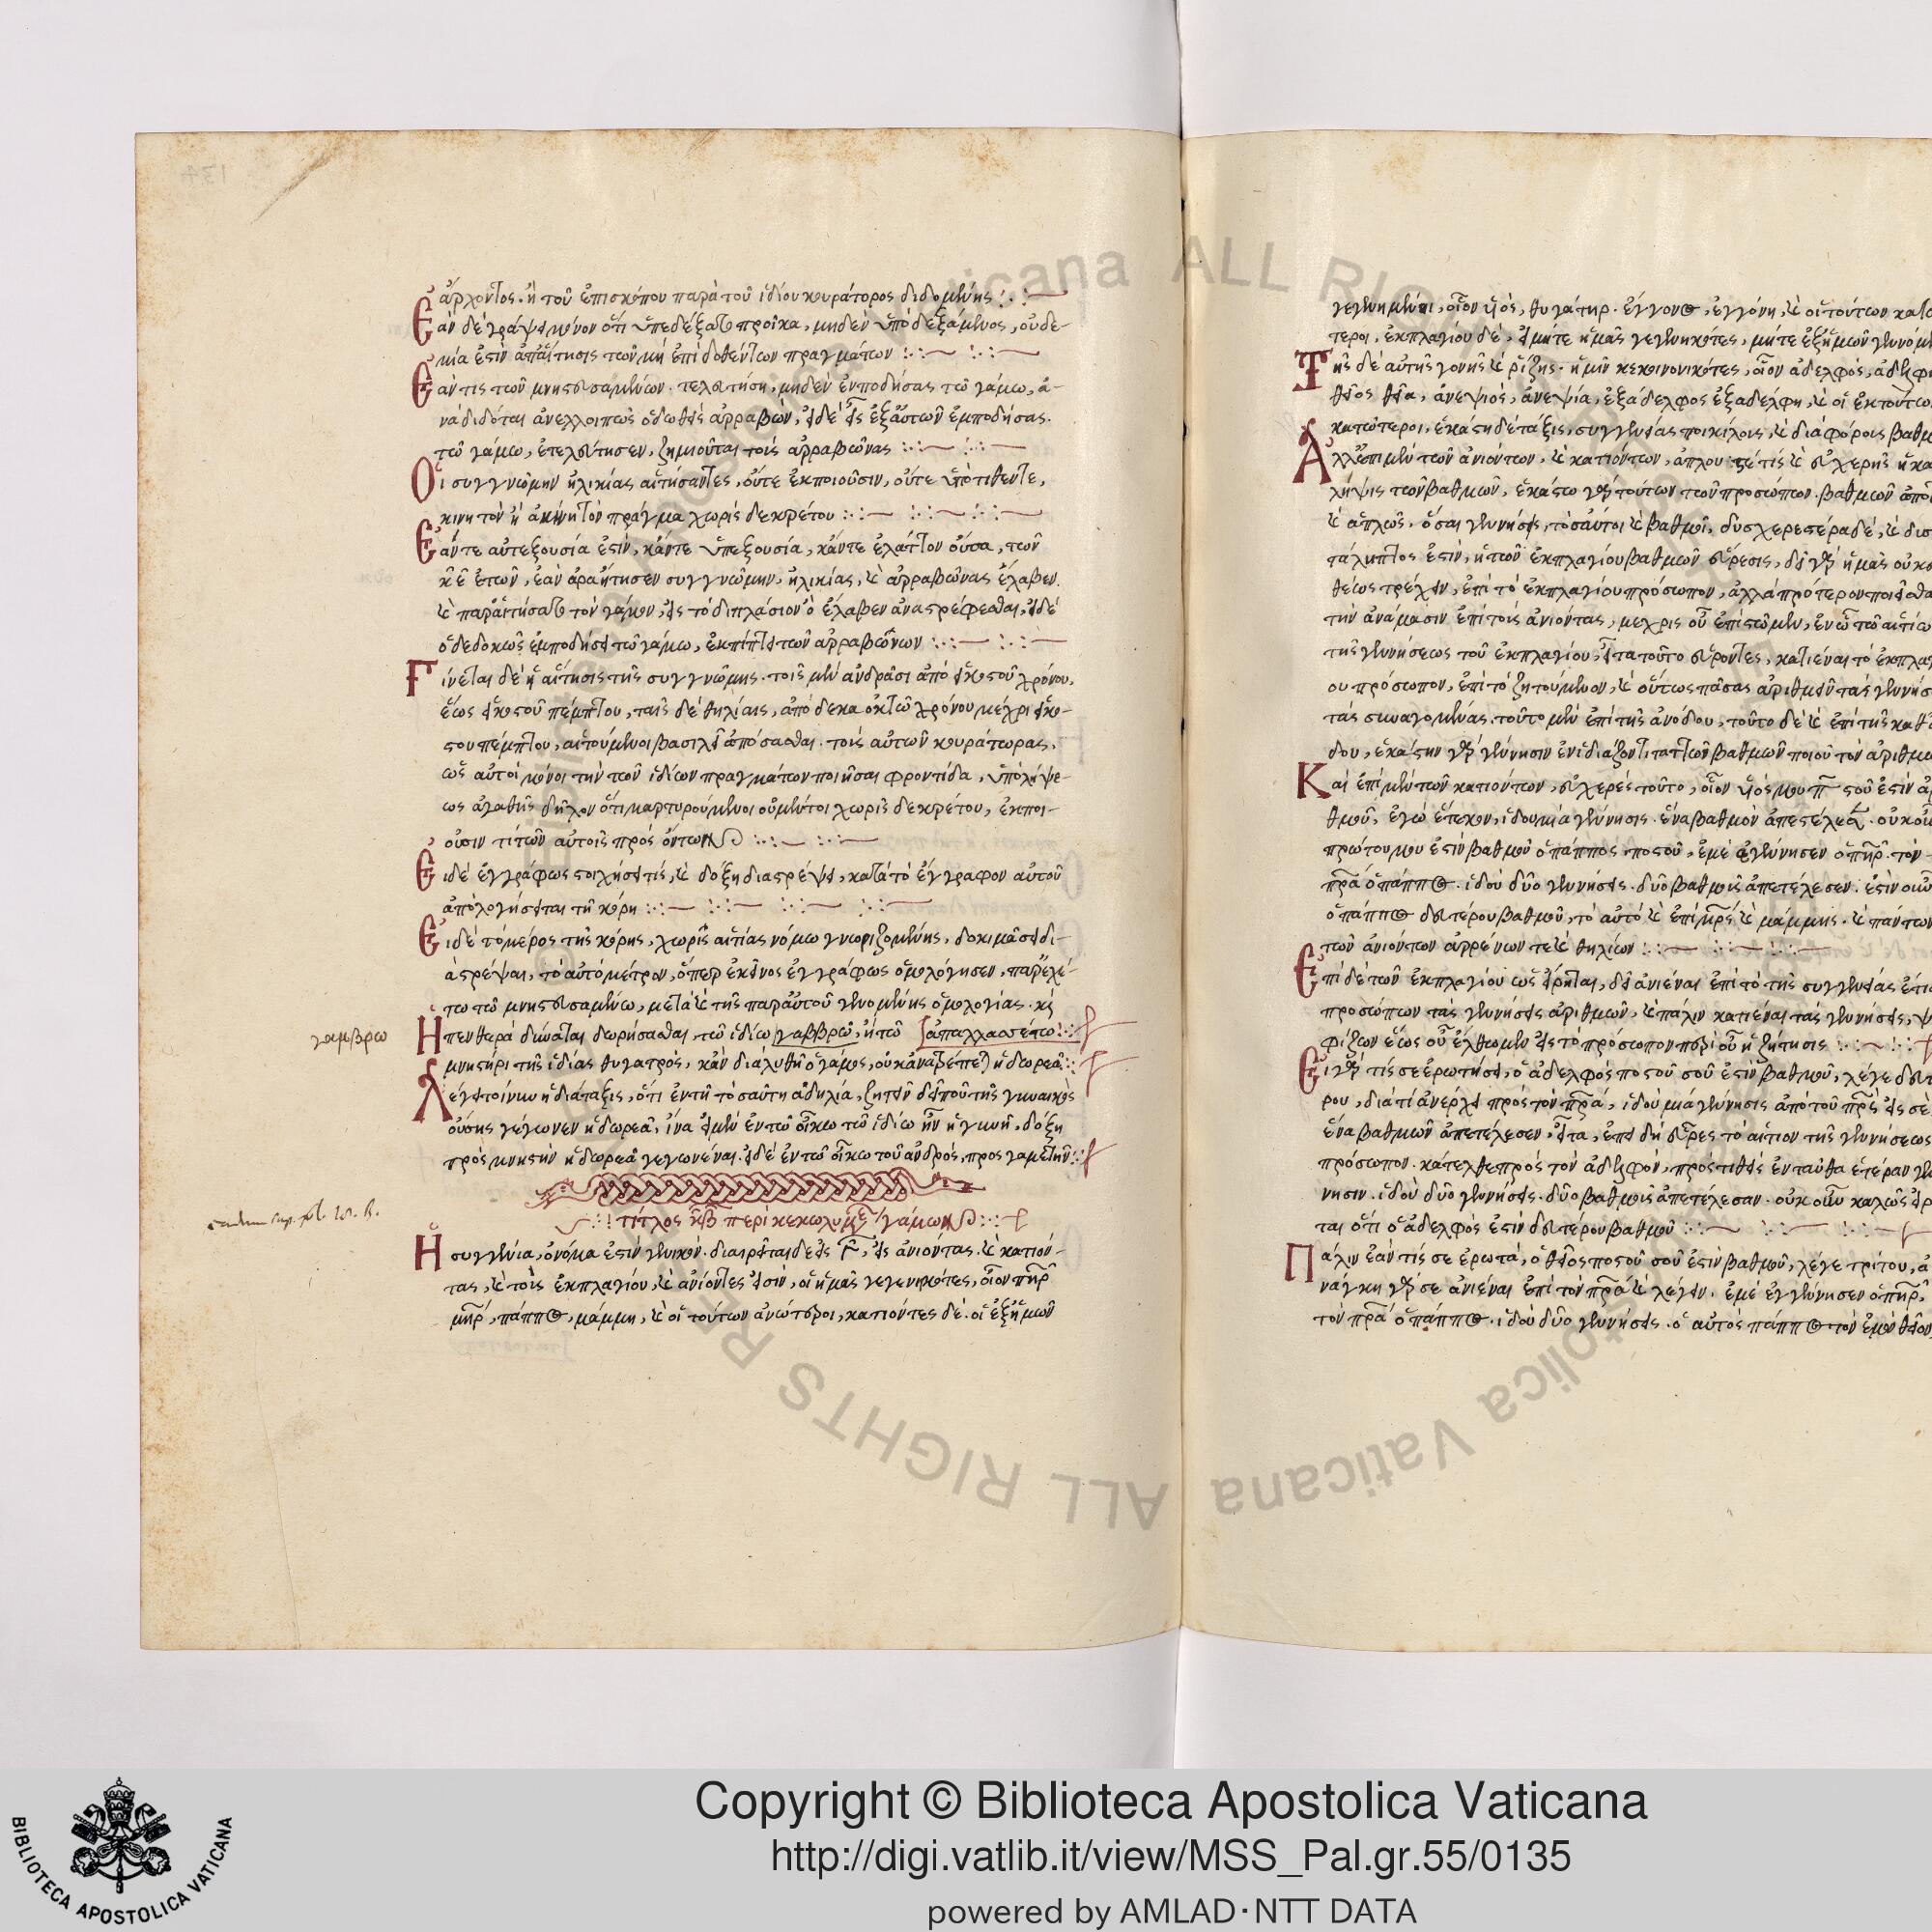 ἄρχοντος. ἢ τοῦ ἐπισκόπου παρὰ τοῦ ἰδίου κουράτορος διδομένης
Ἐὰν δὲ γράψει μόνον ὅτι ὑπεδέξατο προῖκα, μηδὲν ὑποδεξάμενος, οὐδε-
μία ἐστὶν ἀπαίτησις τῶν μὴ ἐπιδοθέντων πραγμάτων
Ἐάν τις τῶν μνηστευσαμένων. τελευτήσῃ, μηδὲν ἐνποδήσας τῶ γάμω, ἀ-
ναδίδοται ἀνελλοιπῶς ὁ δωθεὶς ἀρραβών, εἰ δὲ εἷς ἐξ αὐτῶν ἐμποδήσας.
τῶ γάμω, ἐτελεύτησεν, ζημιοῦται τοὶς ἀρραβῶνας
Οἱ συγγνώμην ἡλικίας αἰτήσαντες, οὔτε ἐκποιοῦσιν, οὔτε ὑποτιθεντε,
κινητὸν ἢ ἀκίνητον πράγμα χωρὶς δεκρέτου
Ἐάν τε αὐτεξουσία ἐστὶν, κἄν τε ὑπεξουσία, κἄν τε ἐλάττον οὖσα, τῶν
κε ἐτῶν, ἐὰν ἀραἤτησεν συγγνώμην, ἡλικίας, καὶ ἀρραβῶνας ἔλαβεν.
καὶ παραιτήσατο τὸν γάμον, εἰς τὸ διπλάσιον ὃ ἔλαβεν ἀναστρέφεσθαι, εἰ δὲ
ὁ δεδοκὼς ἐμποδήσει τῶ γάμω, ἐκπίπτει τῶν ἀρραβώνων
Γίνεται δὲ ἡ αἴτησις τῆς συγγνώμης. τοῖς μὲν ἀνδράσι ἀπὸ εἰκοστοῦ χρόνου,
ἕως εἰκοστοῦ πέμπτου, ταῖς δὲ θηλίαις, ἀπὸ δεκα οκτῶ χρόνου μέχρι εἰκο-
στου πέμπτου, αἰτούμενοι βασιλεῖ ἀπόσασθαι. τοὶς αὐτῶν κουράτωρας,
ὡς αὐτοὶ μόνοι τὴν τῶν ἰδίων πραγμάτων ποιῆσαι φροντίδα, ὑπολήψε-
ως ἀγαθῆς δῆλον ὅτι μαρτυρούμενοι οὐ μέντοι χωρὶς δεκρέτου, ἐκποι-
οῦσιν τὶ τῶν αὐτοῖς πρὸς ὄντων
Εἰ δὲ ἐγγράφως στοιχήσει τίς, καὶ δόξη διαστρέψει, κατὰ τὸ ἔγγραφον αὐτοῦ
ἀπολογήσεται τῆ κόρη
Εἰ δὲ τὸ μέρος τῆς κόρης, χωρὶς αἰτίας νόμω γνωριζομένης, δοκιμάσει δι-
αστρέψαι, τὸ αὐτὸ μέτρον, ὅπερ ἐκεῖνος ἐγγράφως ὁμολόγησεν, παρεχέ-
τω τῶ μνηστευσαμένω, μετὰ καὶ τῆς παρ αὐτοῦ γενομένης ὁμολογίας. κὶ
Ἡ πενθερὰ δύναται δωρήσασθαι, τῶ ἰδίω γαββρῶ, ἢ τῶ [ἀπαλλασσέτω
γαμβρω
μνηστήρι τῆς ἰδίας θυγατρὸς, κἂν διαλυθῆ ὁ γάμος, οὐκ ἀνατρέπεται ἡ δωρεά
Λέγει τοίνυν ἡ διάταξις, ὅτι ἐν τῆ τοσαύτη ἀδηλία, ζητεῖν δεῖ ποῦ τῆς γυναικὸς
οὔσης γέγωνεν ἡ δωρεά, ἵνα εἰ μὲν ἐν τῶ οἴκω τῶ ἰδίω ἦν ἡ γυνὴ, δόξη
πρὸς μνηστὴν ἡ δωρεὰ γεγωνέναι. εἰ δὲ ἐν τῶ οἴκω τοῦ ἀνδρὸς, προς γαμετὴν
τίτλος κβ περὶ κεκωλυμένων γάμων
Ἡ συγγένια, ὀνόμα ἐστὶν γενικόν. διαιρεῖται δὲ εἰς Γ, εἰς ἀνιόντας. καὶ κατιόν-
τας, καὶ τοὶς ἐκπλαγίου, καὶ ἀνίοντες εἰσὶν, οἱ ἡμᾶς γεγενικότες, οἷον πηρ
μηρ, πάππος, μάμμη, καὶ οἱ τούτων ἀνώτεροι, κατιόντες δὲ. οἱ ἐξ ἡμῶν
γεγενημένοι, οἷον υἱὸς, θυγάτηρ. ἔγγονος, ἐγγόνη, καὶ οἱ τούτων
τεροι, ἐκπλαγίου δὲ, εἰ μήτε ἡμᾶς γεγενηκότες, μήτε ἐξ ἡμῶν
Τῆς δὲ αὐτῆς γονῆς καὶ ρίζης. ἡμῖν κεκοινονικότες, οἷον ἀδελφὸς,
θεῖος θεία, ἀνεψιὸς, ἀνεψία, ἐξάδελφος ἐξαδέλφη, καὶ οἱ ἐκ τούτω
κατώτεροι, ἑκάστη δὲ τάξις, συγγενείας ποικίλοις, καὶ διαφόροις
Ἀλλ ἐπι μὲν τῶν ἀνιόντων, καὶ κατιόντων, ἁπλουστέ τίς καὶ εὐχερὴς
λήψις τῶν βαθμῶν, ἑκάστω γὰρ τούτων τῶν προσώπων. βαθμῶν
καὶ ἁπλῶς. ὅσαι γεννήσεις, τοσαῦτοι καὶ βαθμοὶ, δυσχερεστέρα δὲ, καὶ
τάληπτος ἐστὶν, ἡ τῶν ἐκπλαγίου βαθμῶν εὕρεσις, δεῖ γὰρ ἡμᾶς
θέως τρέχειν, ἐπὶ τὸ ἐκπλαγίου πρόσωπον, ἀλλὰ πρότερον
τὴν ἀνάμασιν ἐπὶ τοὶς ἀνιόντας, μεχρις οὗ ἐπιστῶμεν, ἐν ᾧ τῶ
τῆς γεννήσεως τοῦ ἐκπλαγίου, εἶτα τοῦτο εὑρόντες, κατιέναι τὸ
ου πρόσωπον, ἐπὶ τὸ ζητούμενον, καὶ οὕτως πᾶσας ἀριθμεῖν τὰς
τὰς συναγομένας. τοῦτο μὲν ἐπὶ τῆς ἀνόδου, τοῦτο δὲ καὶ ἐπὶ τῆς
δου, ἑκάστην γὰρ γέννησιν ἐνιδιάζοντι τάττων βαθμῶν ποιοῦ τὸν
Καὶ ἐπὶ μὲν τῶν κατιόντων, εὐχερὲς τοῦτο, οἷον υἱός μου
θμοῦ, ἐγὼ ἔτεκον, ἰδου μία γέννησις. ἕνα βαθμὸν ἀπετέλεσα.
πρώτου μου ἐστὶν βαθμοῦ ὁ πάππος. ποσοῦ, ἐμὲ ἐγέννησεν ὁ πηρ. τὸν
πρα ὁ πάππος. ἰδοὺ δύο γεννήσεις. δύο βαθμοὶς ἀπετέλεσεν.
ὁ πάππος δευτέρου βαθμοῦ, τὸ αὐτὸ καὶ ἐπὶ μηρς καὶ μάμμης. καὶ παντων
τῶν ἀνιόντων ἀρρένων τε καὶ θηλίων
Ἐπὶ δὲ τῶν ἐκπλαγίου ὡς εἴρηται, δεῖ ἀνιέναι ἐπὶ τὸ τῆς συγγενείας
προσώπων τὰς γεννήσεις ἀριθμῶν, καὶ πάλιν κατιέναι τὰς γεννήσεις,
φίζων ἕως οὗ ἔλθωμεν εἰς τὸ πρόσωπον περὶ οὗ ἡ ζήτησις
Εἰ γάρ τίς σε ἐρωτήσει, ὁ ἀδελφὸς ποσοῦ σοῦ ἐστὶν βαθμοῦ, λέγε
ρου, διὰ τί ἀνέρχει πρὸς τὸν πρα, ἰδοὺ μία γέννησις ἀπὸ τοῦ πρς εἰς σὲ
ἕνα βαθμῶν ἀπετέλεσεν, εἶτα, ἐπειδὴ εὗρες τὸ αἴτιον τῆς γεννήσεως
πρόσωπον. κάτελθε πρὸς τὸν ἀδελφὸν, προστιθεὶς ἐνταῦθα ἑτέραν
νησιν. ἰδοὺ δύο γεννήσεις. δύο βαθμοὶς ἀπετέλεσαν. οὐκοῦν καλῶς
ται ὅτι ὁ ἀδελφὸς ἐστὶν δευτέρου βαθμοῦ
Πάλιν ἐὰν τίς σε ἐρωτὰ, ὁ θεῖος ποσοῦ σοῦ ἐστὶν βαθμοῦ, λέγε τρίτου,
ναγκη γάρ σε ἀνιέναι ἐπὶ τὸν πρα καὶ λέγειν. ἐμὲ ἐγέννησεν ὁ πηρ,
τὸν πρα ὁ πάππος. ἰδοὺ δύο γεννήσεις. ὁ αὐτὸς πάππος τὸν ἐμὸν θεῖον
Biblioteca Apostolica Vaticana ALL RIGHTS
Copyright © Biblioteca Apostolica Vaticana
http://digi.vatlib.it/view/MSS_Pal.gr.55/0135
powered by AMLAD·NTT DATA
BIBLIOTECA APOSTOLICA VATICANA